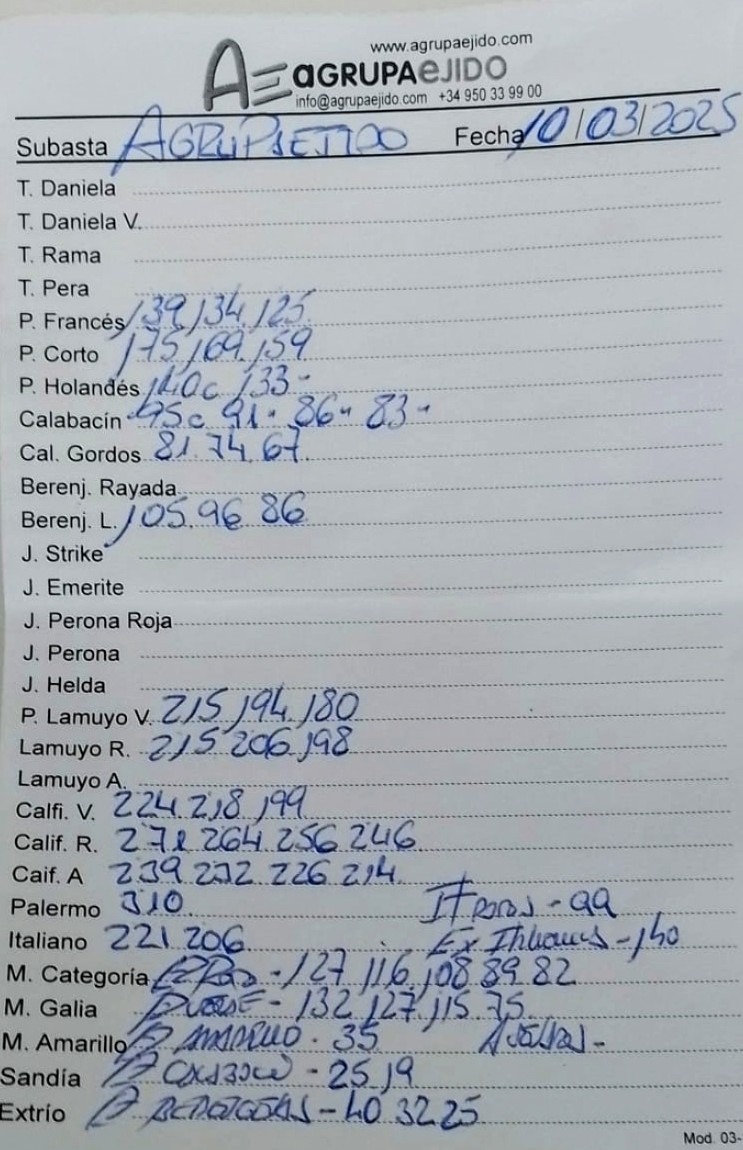 www.agrupaejido.com
AE aGRUPAeJIDO
info@agrupaejido.com +34 950 33 99 00
Subasta AGRUPAEJIDO Fecha 10/03/2025
T. Daniela
T. Daniela V.
T. Rama
T. Pera
P. Francés 139 134 125
P. Corto 175 169 159
P. Holandés 140c 133-
Calabacín 95c 91- 86- 83-
Cal. Gordos 81 74 67
Berenj. Rayada
Berenj. L. 105 96 86
J. Strike
J. Emerite
J. Perona Roja
J. Perona
J. Helda
P. Lamuyo V. 215 194 180
Lamuyo R. 215 206 198
Lamuyo A.
Calfi. V. 224 218 199
Calif. R. 271 264 256 246
Caif. A 239 232 226 214
Palermo 310 - 99
Italiano 221 206 Ex - 140
M. Categoría - 127 116 108 89 82
M. Galia - 132 127 115 75
M. Amarillo AMARILLO - 35
Sandía - 25 19
Extrío - 40 32 25
Mod. 03-